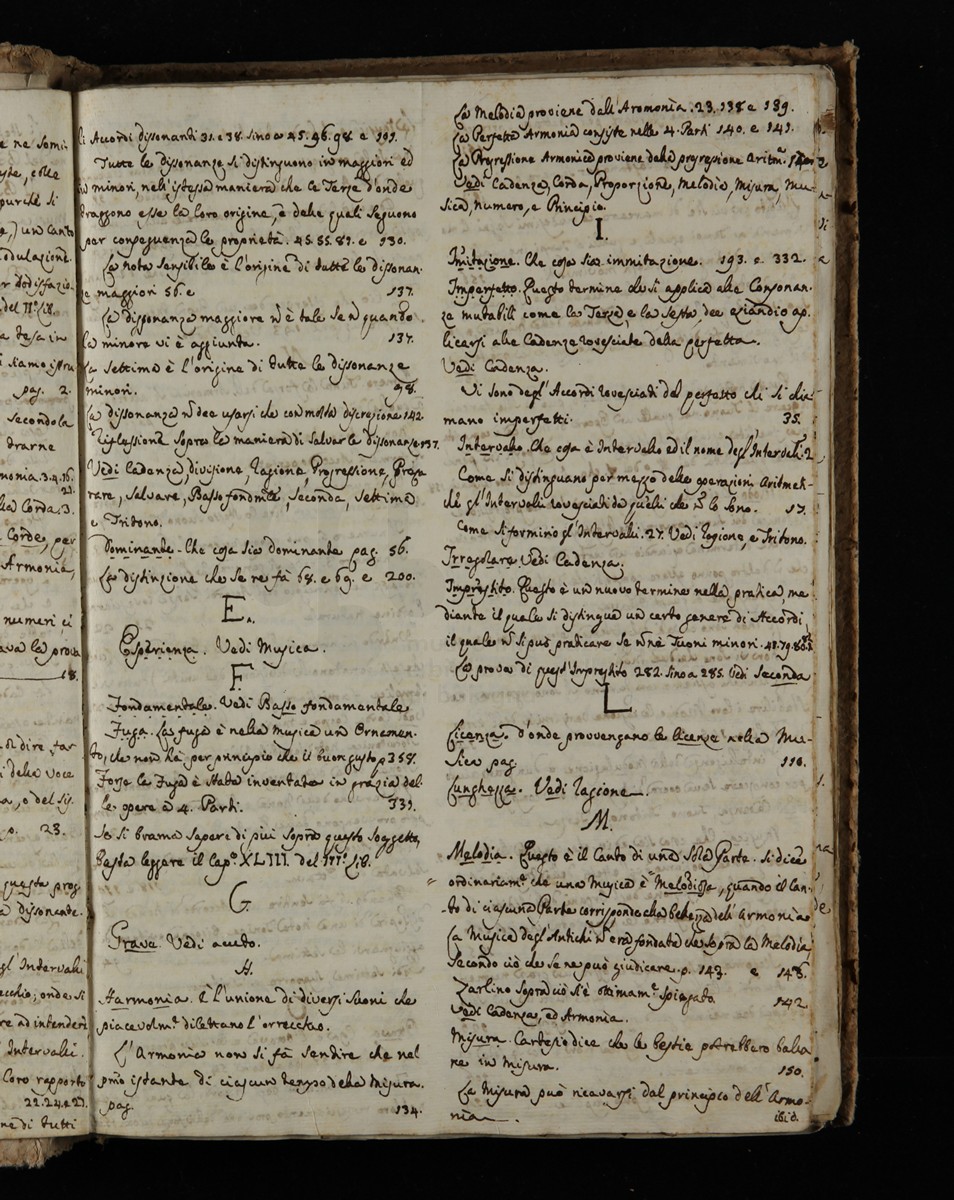 e ne semi
purchè si
e,) un canto
odulazione.
del II.º Lib.
e tesa in
pag. 2.
secondo la
trarne
monia. 3. 4. 16.
la Corda. 3.
Corde, per
Armonia,
numeri, ci
18.
di dire, far
i della voce
a, o del si
p. 23.
questa prog
a dissonante.
gl'Intervalli
ecchio; onde si
re ad intendere
Intervalli.
loro rapporto
22. 24. e 27.
ne di tutti
li Accordi dissonanti 31. e 38. sino a 45. 96. 98. e 101.
Tutte le dissonanze si distinguono in maggiori ed
in minori, nell'istessa maniera che le Terze d'onde
traggono esse la loro origine, e dalle quali seguono
per conseguenza le proprietà. 45. 55. 81. e 130.
La nota sensibile è l'origine di tutte le dissonan-
ze maggiori 56. e 137.
La dissonanza maggiore ñ è tale se ñ quando
la minore vi è aggiunta. 137.
La settima è l'origine di tutte le dissonanze
minori. 98.
La dissonanza ñ dee usarsi che con molta discrezione 142.
Riflessioni sopra la maniera di salvar le dissonanze 137.
Vedi Cadenza, divisione, Ragione, Progressione, Prepa
rare, Salvare, Basso fondam.le, seconda, settima
e Tritono.
Dominante. Che cosa sia dominante pag. 56.
La distinzione che se ne fà 68. e 69. e 200.
E.
Esperienza. Vedi Musica.
F
Fondamentale. Vedi Basso fondamentale
Fuga. La fuga è nella musica un Ornamen-
to, che non hà per principio che il buon gusto p. 358.
Forse la Fuga è stata inventata in grazia del-
le opere à 4. Parti. 331.
Se si brama sapere di più sopra questo soggetto,
basta leggere il Cap.º XLIII. del III.º Lib.
G
Grave Vedi acuto.
H.
Harmonia. È l'unione di diversi suoni che
piacevolm.te dilettano l'orrecchio.
L'Armonia non si fà sentire che nel
pr̃mo istante di ciascun tempo della misura.
pag. 134.
La Melodia proviene dall'Armonia. 23. 138 e 139.
La Perfetta Armonia consiste nelle 4. Parti 140. e 141.
La Progressione Armonica proviene dalla progressione Aritm.ca
Vedi Cadenza, Corda, Proporzione, Melodia, Misura, Mu-
sica, numero, e Principio.
I.
Imitazione. Che cosa sia immitazione. 193. e 332.
Imperfetto. Questo termine che si applica alle Consonan-
ze mutabili come la Terza, e la Sesta, dee eziandio ap-
plicarsi alle Cadenze rovesciate della perfetta.
Vedi Cadenza.
Vi sono degl'Accordi rovesciati dal perfetto che si chia
mano imperfetti. 35.
Intervallo. Che cosa è Intervallo ed il nome degl'Intervalli. 2
Come si distinguano per mezzo delle operazioni Aritmeti-
che gl'Intervalli rovesciati da quelli che ñ lo sono. 17.
Come si formino gl'Intervalli. 27. Vedi Ragione, e Tritono.
Irregolare Vedi Cadenza.
Imprestito. Questo è un nuovo termine nella pratica, me
diante il quale si distingue un certo genere di Accordi
il quale ñ si può praticare se ñ nè Tuoni minori. 43. 79. 80.
La prova di quest'Imprestito 282. sino a 285. Vedi Seconda
L
Licenza. d'onde provvengano le licenze nella Mu-
sica pag. 110.
Lunghezza. Vedi ragione.
M.
Melodia. Questo è il Canto di una sola Parte. Si dice
ordinariam.te che una Musica è Melodiosa, quando il Can-
to di ciascuna Parte corrisponde alla bellezza dell'Armonia
La Musica degl'Antichi ñ era fondata che sopra la Melodia
secondo ciò che se ne può giudicare. p. 143. e 148.
Zarlino sopra ciò s'è ottimam.te spiegato 142
Vedi Cadenza, ed Armonia.
Misura. Cartesio dice che le bestie potrebbero balla
re in misura. 150.
La misura può ricavarsi dal principio dell'Armo-
nia. ibid.